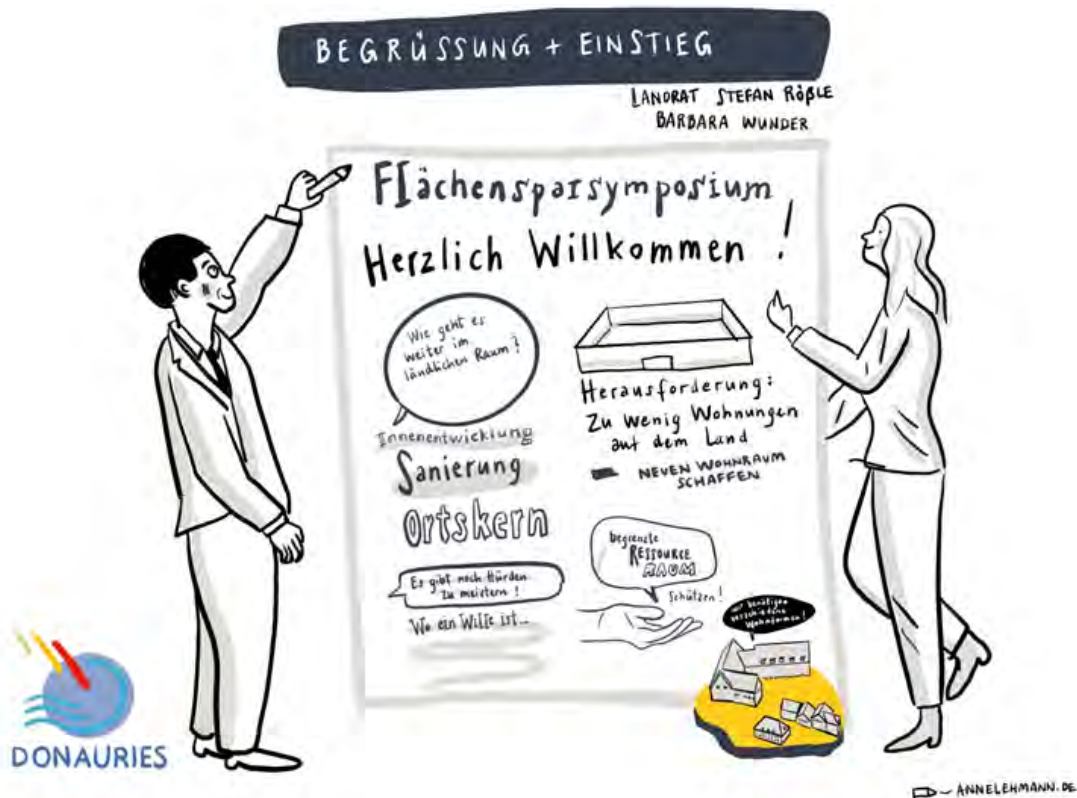 BEGRÜSSUNG + EINSTIEG
LANDRAT STEFAN RÖßLE
BARBARA WUNDER
Flächensparsymposium
Herzlich Willkommen!
Wie geht es
weiter im
ländlichen Raum?
Innenentwicklung
Sanierung
Ortskern
Es gibt noch Hürden
zu meistern!
Wo ein Wille ist...
Herausforderung:
Zu wenig Wohnungen
auf dem Land
NEUEN WOHNRAUM
SCHAFFEN
begrenzte
RESSOURCE
RAUM
schützen!
wir benötigen
verschiedene
Wohnformen!
DONAURIES
ANNELEHMANN.DE